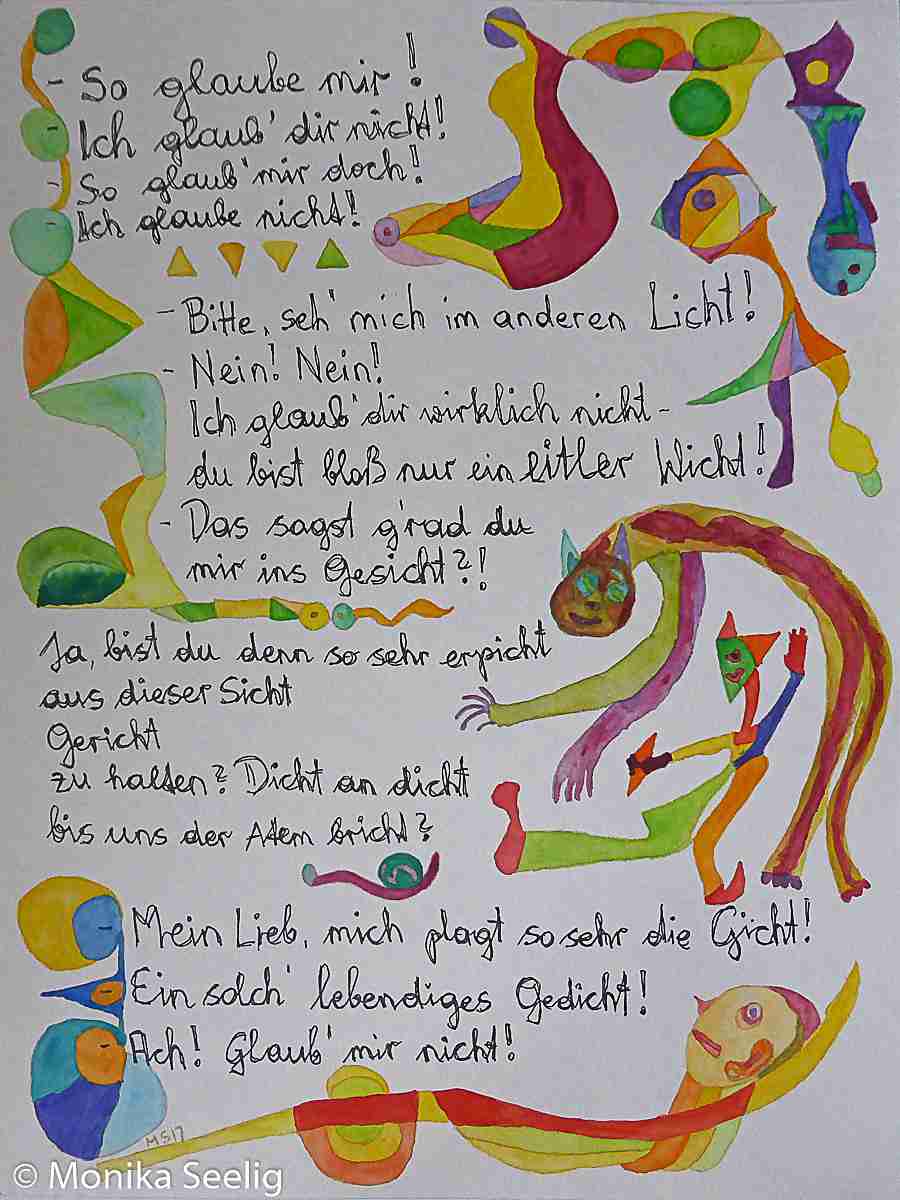 - So glaube mir!
Ich glaub' dir nicht!
- So glaub' mir doch!
Ich glaube nicht!
- Bitte, seh' mich im anderen Licht!
- Nein! Nein!
Ich glaub' dir wirklich nicht -
du bist bloß nur ein eitler Wicht!
- Das sagst g'rad du
mir ins Gesicht?!
Ja, bist du denn so sehr erpicht
aus dieser Sicht
Gericht
zu halten? Dicht an dicht
bis uns der Atem bricht?
Mein Lieb, mich plagt so sehr die Gicht!
Ein solch' lebendiges Gedicht!
Ach! Glaub' mir nicht!
MS17
© Monika Seelig